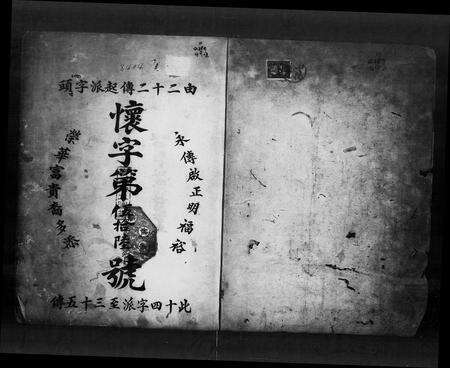 由二十二傳起派字頭
永傳啟正明福裕
懷字第伍拾陸號
榮華富貴喬多
此十四字派至三十五傳